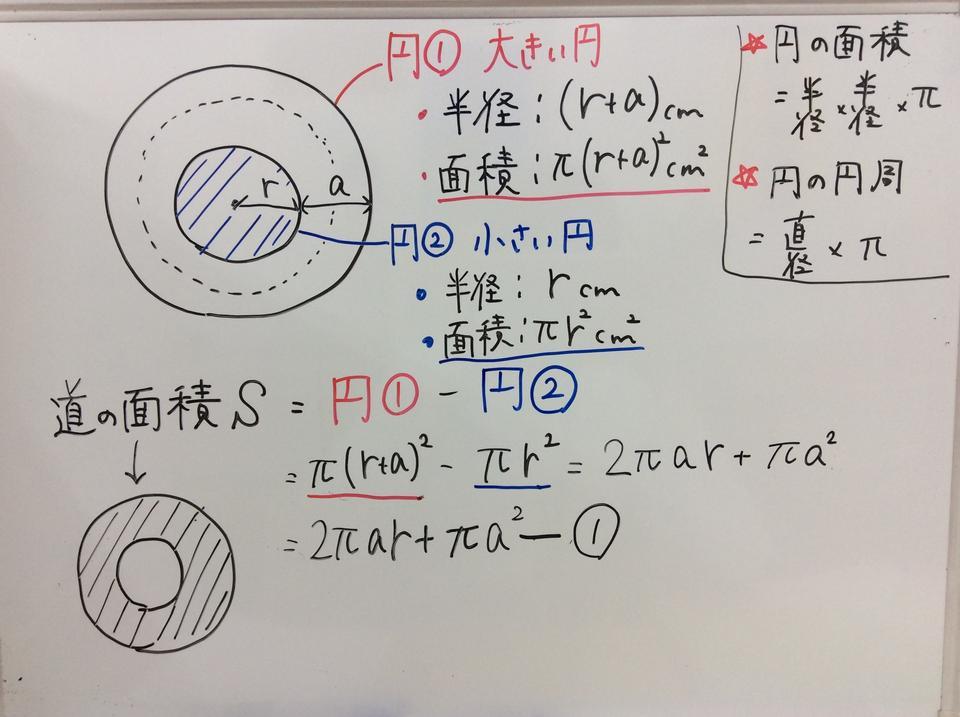 円① 大きい円
・半径：(r+a)cm
・面積：π(r+a)²cm²
r a
円② 小さい円
・半径：r cm
・面積：πr²cm²
☆円の面積
=半径×半径×π
☆円の円周
=直径×π
道の面積S = 円① - 円②
= π(r+a)² - πr² = 2πar+πa²
= 2πar+πa² ー ①